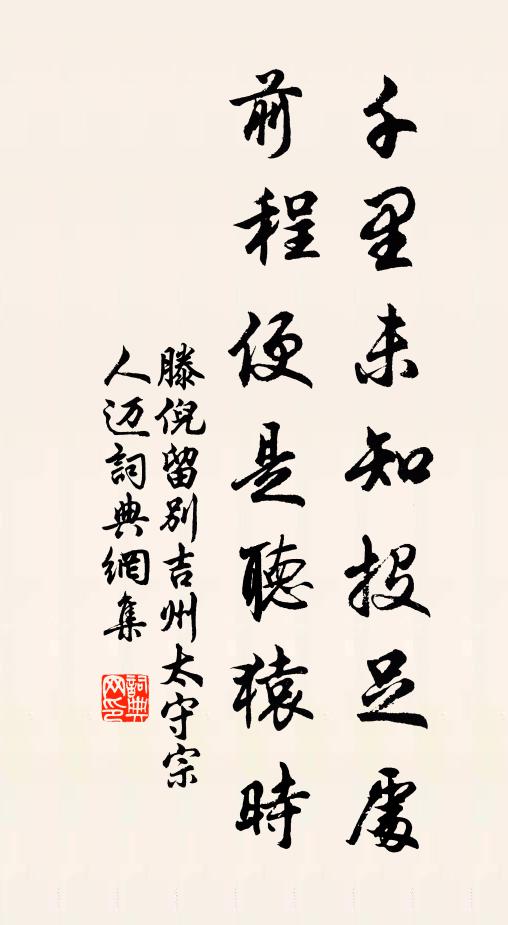 千里未知投足處
前程便是聽猿時
滕倪留別吉州太守宗
人迈詞典網集
詞典
网印